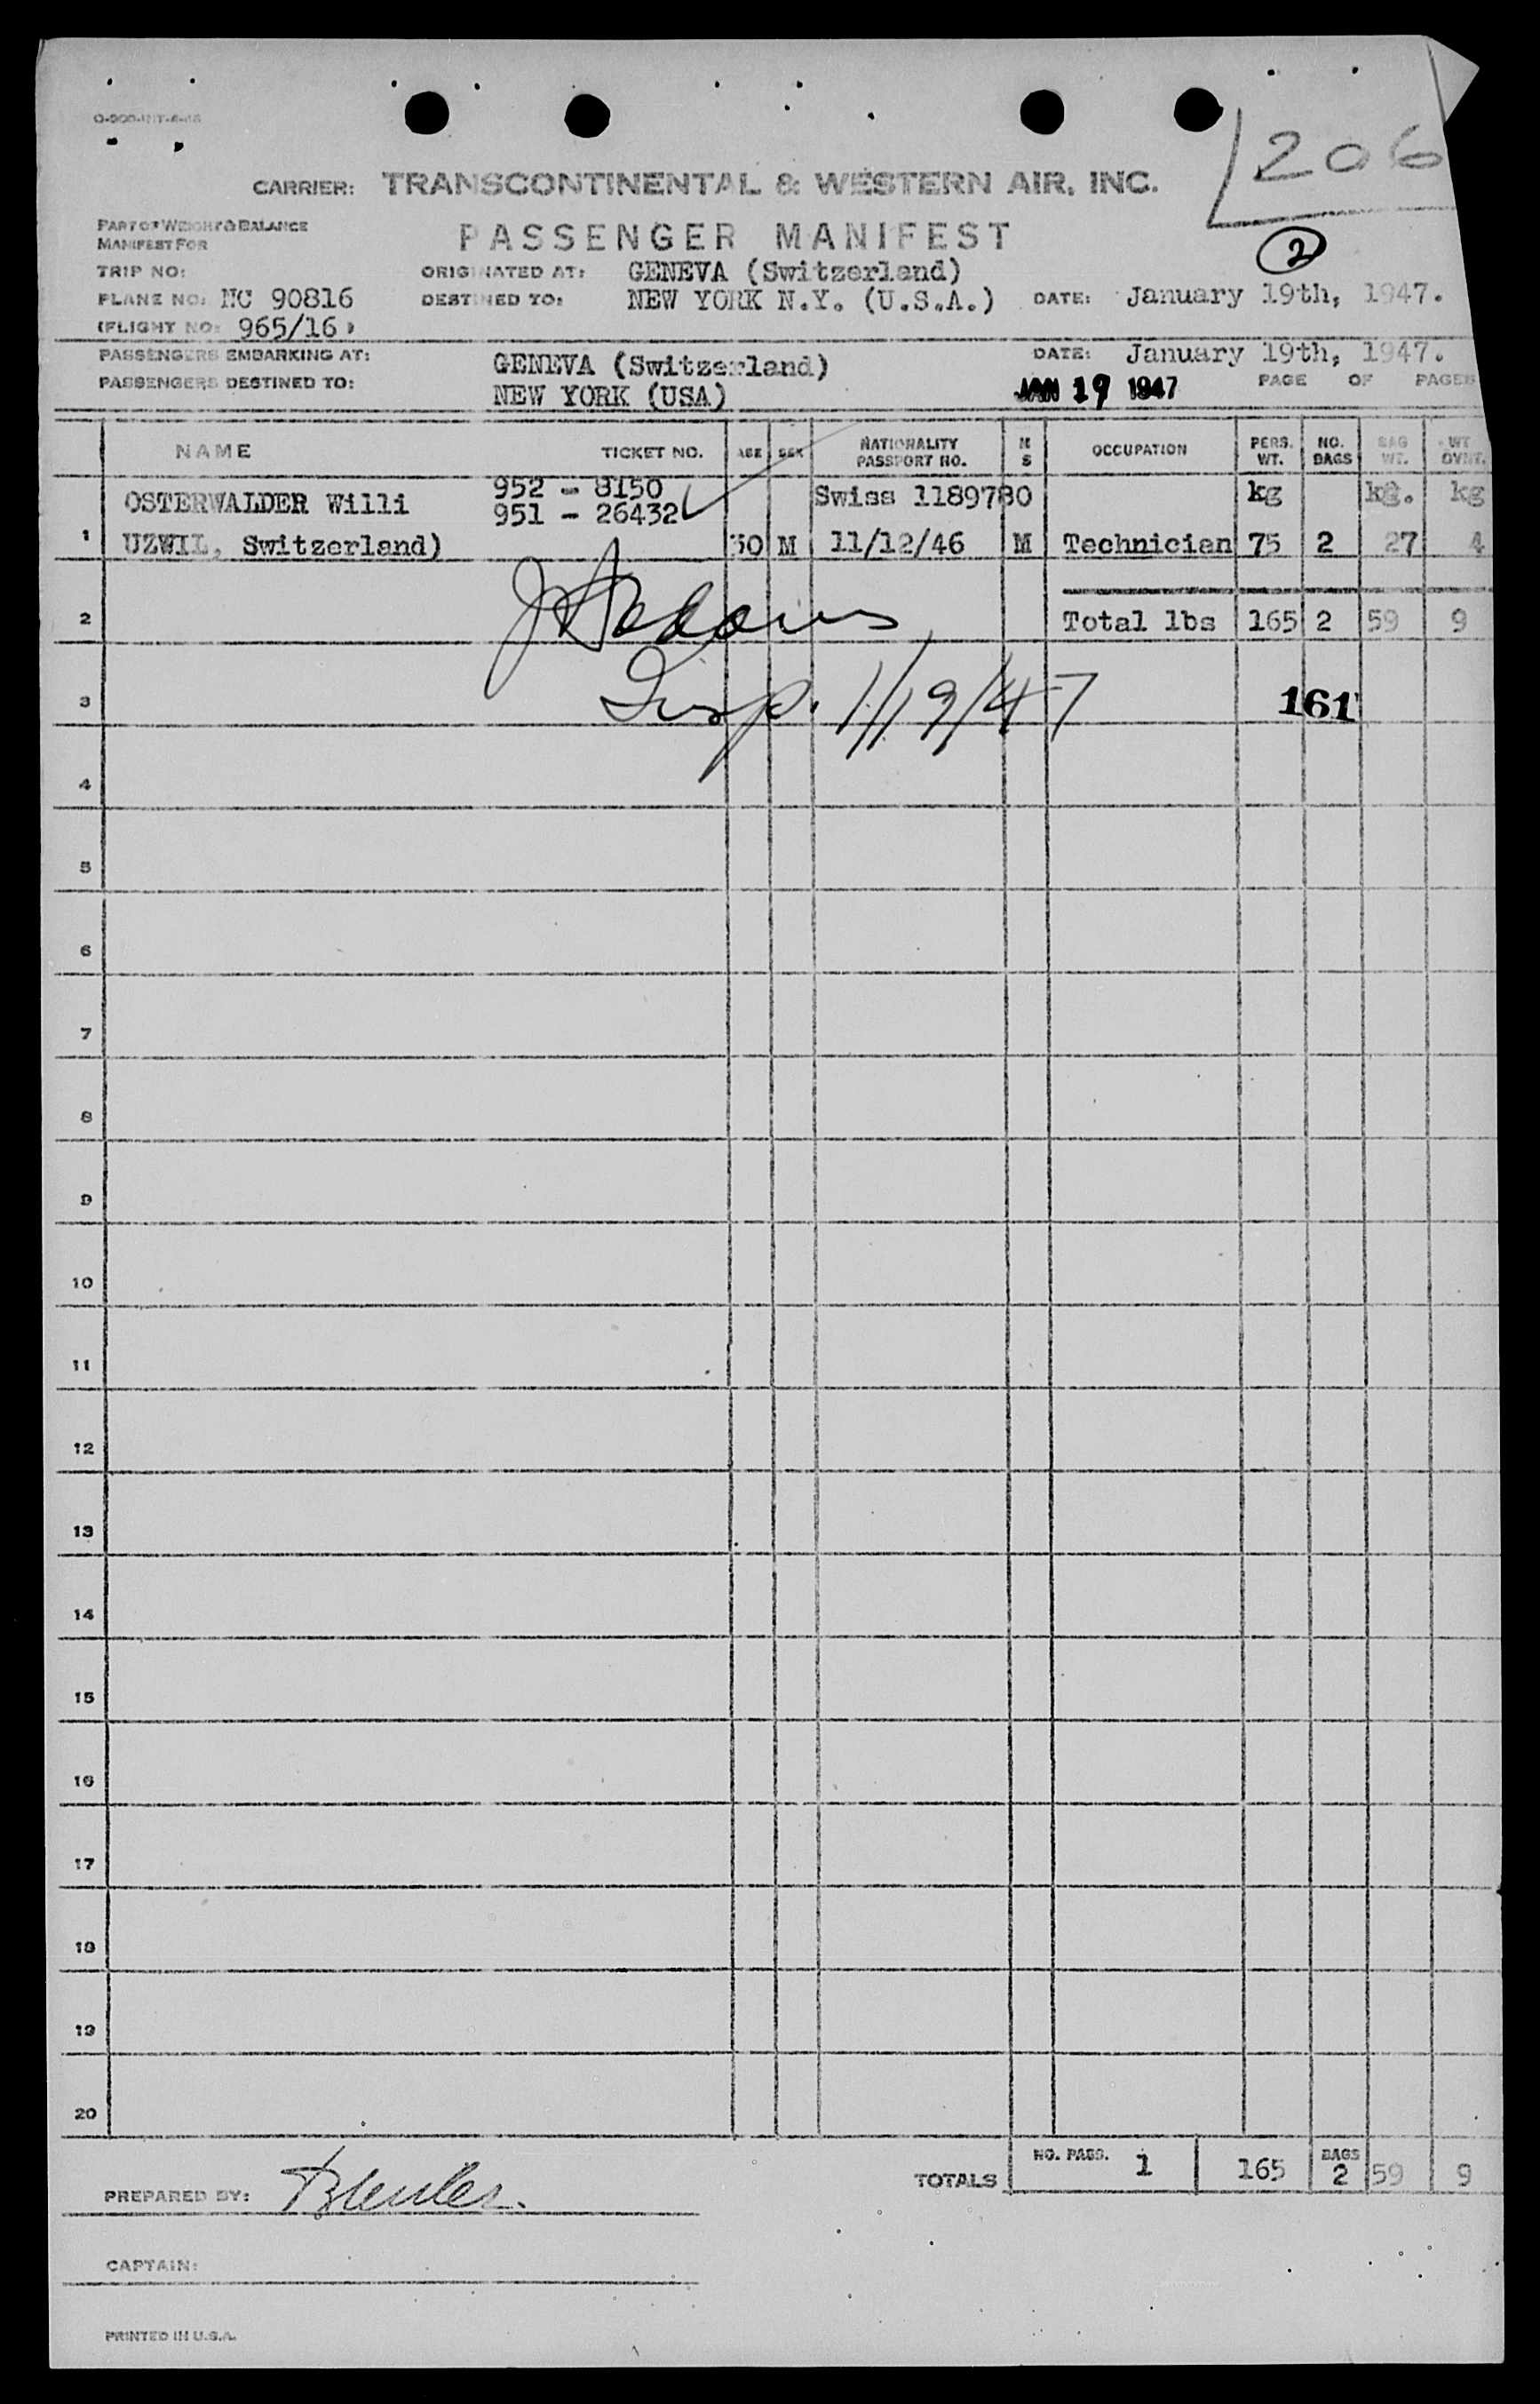 206
CARRIER: TRANSCONTINENTAL & WESTERN AIR, INC.
PART OF WEIGHT & BALANCE
MANIFEST FOR
PASSENGER MANIFEST
2
TRIP NO:
ORIGINATED AT: GENEVA (Switzerland)
PLANE NO: NC 90816
DESTINED TO: NEW YORK N.Y. (U.S.A.) DATE: January 19th, 1947.
(FLIGHT NO: 965/16)
PASSENGERS EMBARKING AT: GENEVA (Switzerland) DATE: January 19th, 1947.
PASSENGERS DESTINED TO: NEW YORK (USA) JAN 19 1947 PAGE OF PAGES
NAME TICKET NO. AGE SEX NATIONALITY PASSPORT NO. M S OCCUPATION PERS. WT. NO. BAGS BAG WT. WT OVNT.
OSTERWALDER Willi 952 - 8150 Swiss 1189780 kg kg. kg
951 - 26432
1 UZWIL, Switzerland) 30 M 11/12/46 M Technician 75 2 27 4
2 Total lbs 165 2 59 9
3 Insp. 1/19/47 161
4
5
6
7
8
9
10
11
12
13
14
15
16
17
18
19
20
TOTALS NO. PASS. 1 165 BAGS 2 59 9
PREPARED BY:
CAPTAIN:
PRINTED IN U.S.A.